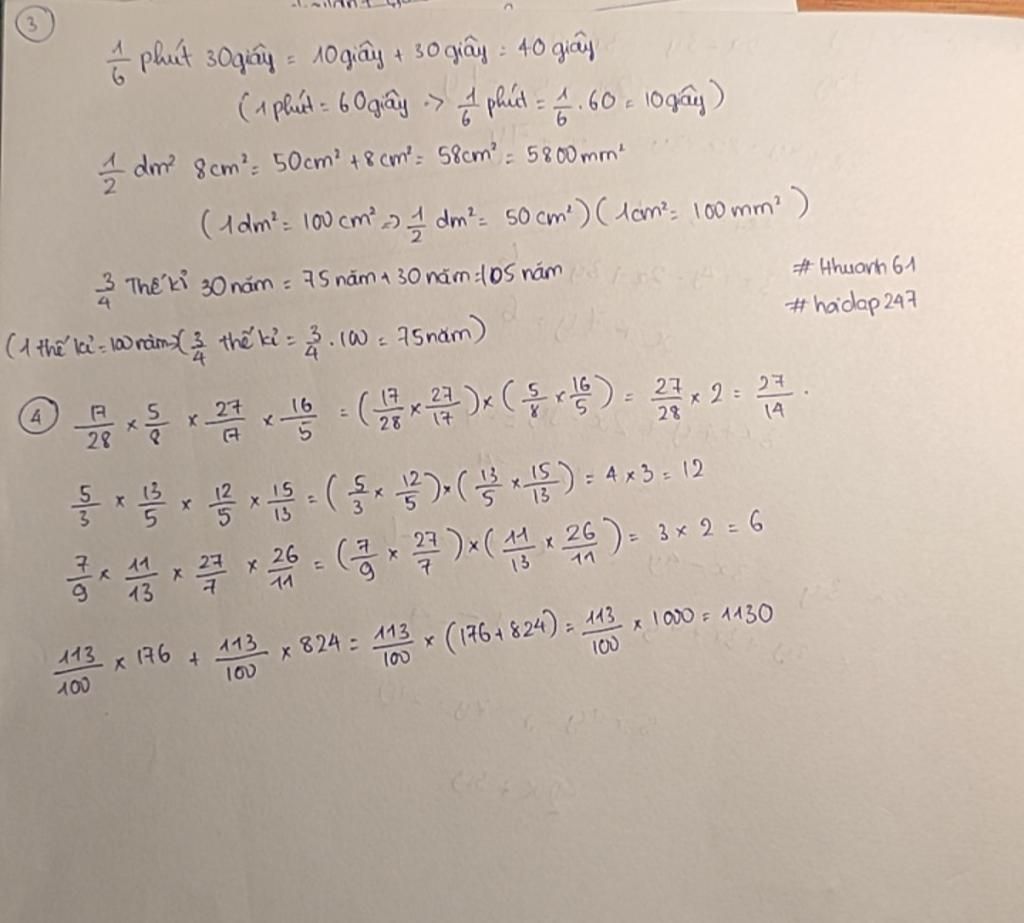 3
1/6 phút 30giây = 10giây + 30giây = 40giây
(1phút = 60giây => 1/6 phút = 1/6 . 60 = 10giây)
1/2 dm² 8cm² = 50cm² + 8cm² = 58cm² = 5800mm²
(1dm² = 100cm² => 1/2 dm² = 50cm²)(1cm² = 100mm²)
3/4 Thế kỉ 30năm = 75năm + 30năm = 105năm
#Hhuanh61
#hoidap247
(1thế kỉ = 100năm)(3/4 thế kỉ = 3/4 . 100 = 75năm)
4 17/28 × 5/8 × 27/17 × 16/5 = (17/28 × 27/17) × (5/8 × 16/5) = 27/28 × 2 = 27/14.
5/3 × 13/5 × 12/5 × 15/13 = (5/3 × 12/5) × (13/5 × 15/13) = 4 × 3 = 12
7/9 × 11/13 × 27/7 × 26/11 = (7/9 × 27/7) × (11/13 × 26/11) = 3 × 2 = 6
113/100 × 176 + 113/100 × 824 = 113/100 × (176 + 824) = 113/100 × 1000 = 1130